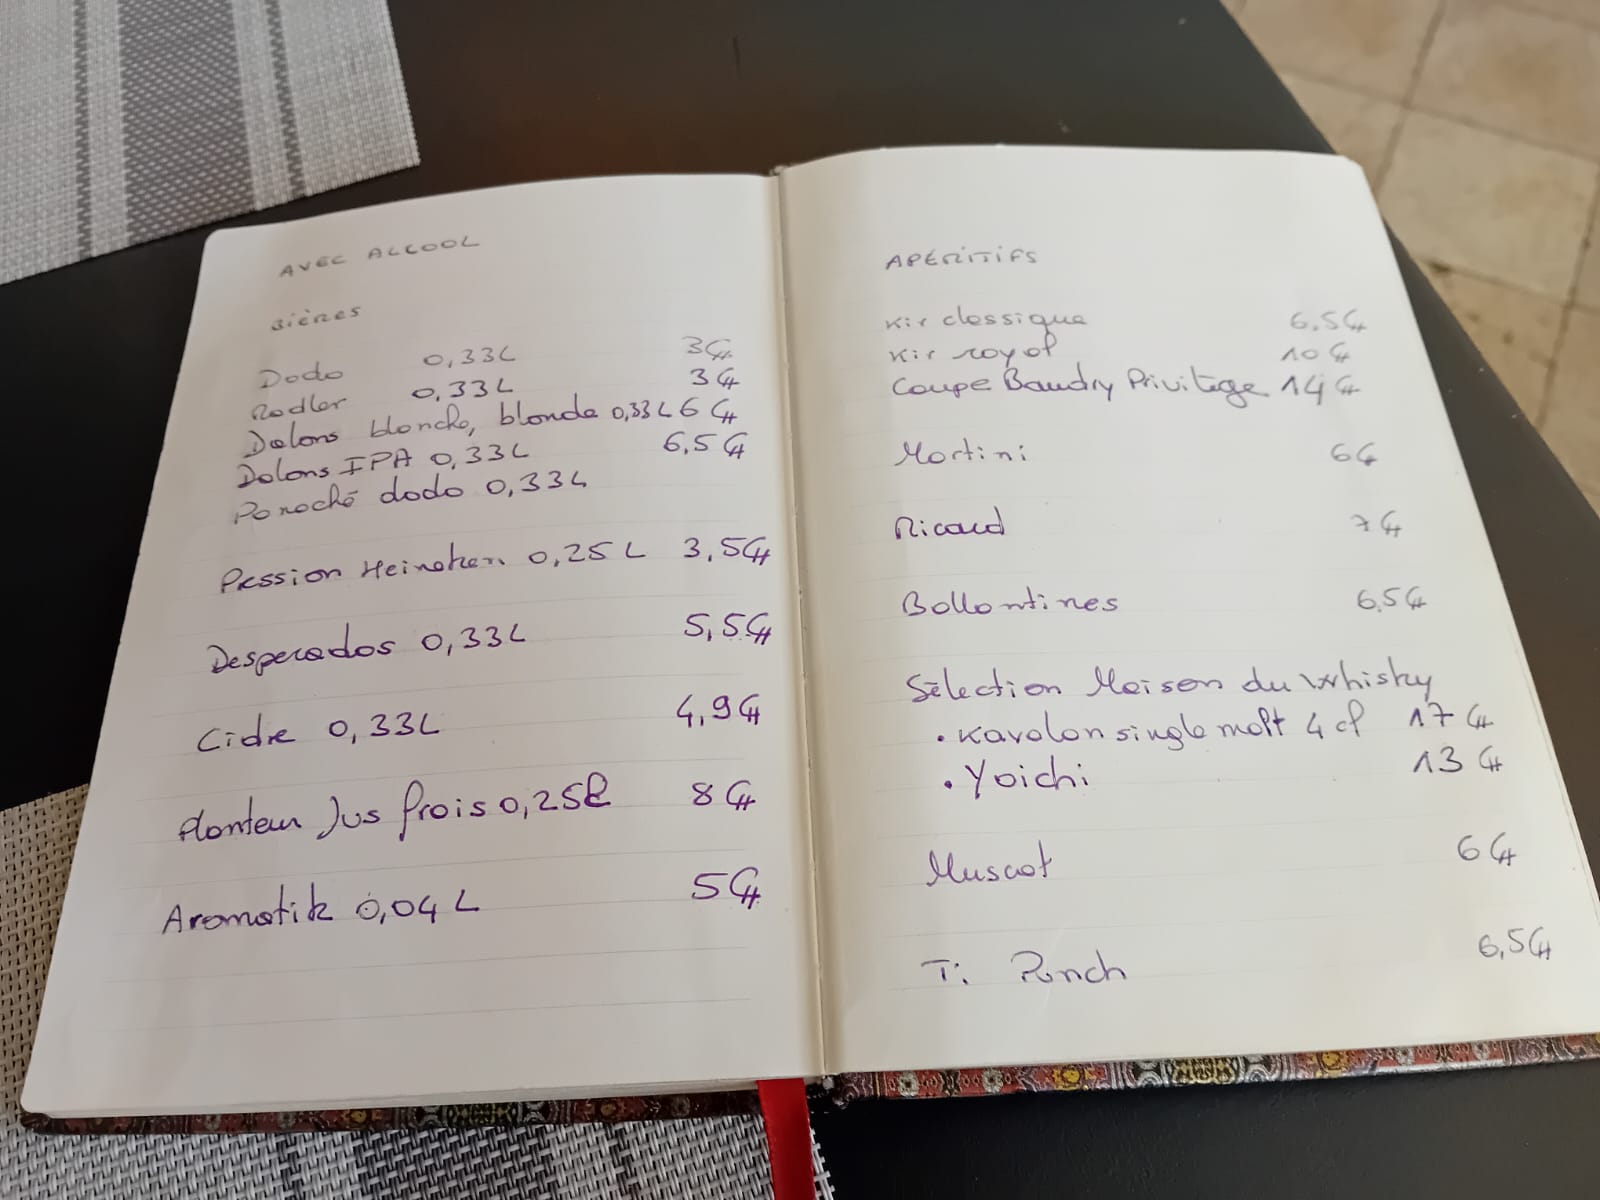 AVEC ALCOOL
Bières
Dodo 0,33L 3€
Radler 0,33L 3€
Dalons blanche, blonde 0,33L 6€
Dalons IPA 0,33L 6,5€
Panaché dodo 0,33L
Pression Heineken 0,25L 3,5€
Desperados 0,33L 5,5€
Cidre 0,33L 4,9€
Planteur Jus frais 0,25l 8€
Aromatik 0,04L 5€
APÉRITIFS
Kir classique 6.5€
Kir royal 10€
Coupe Baudry Privilège 14€
Martini 6€
Ricard 7€
Ballantines 6,5€
Sélection Maison du Whisky
• Kavalan single malt 4 cl 17€
• Yoichi 13€
Muscat 6€
Ti Punch 6,5€